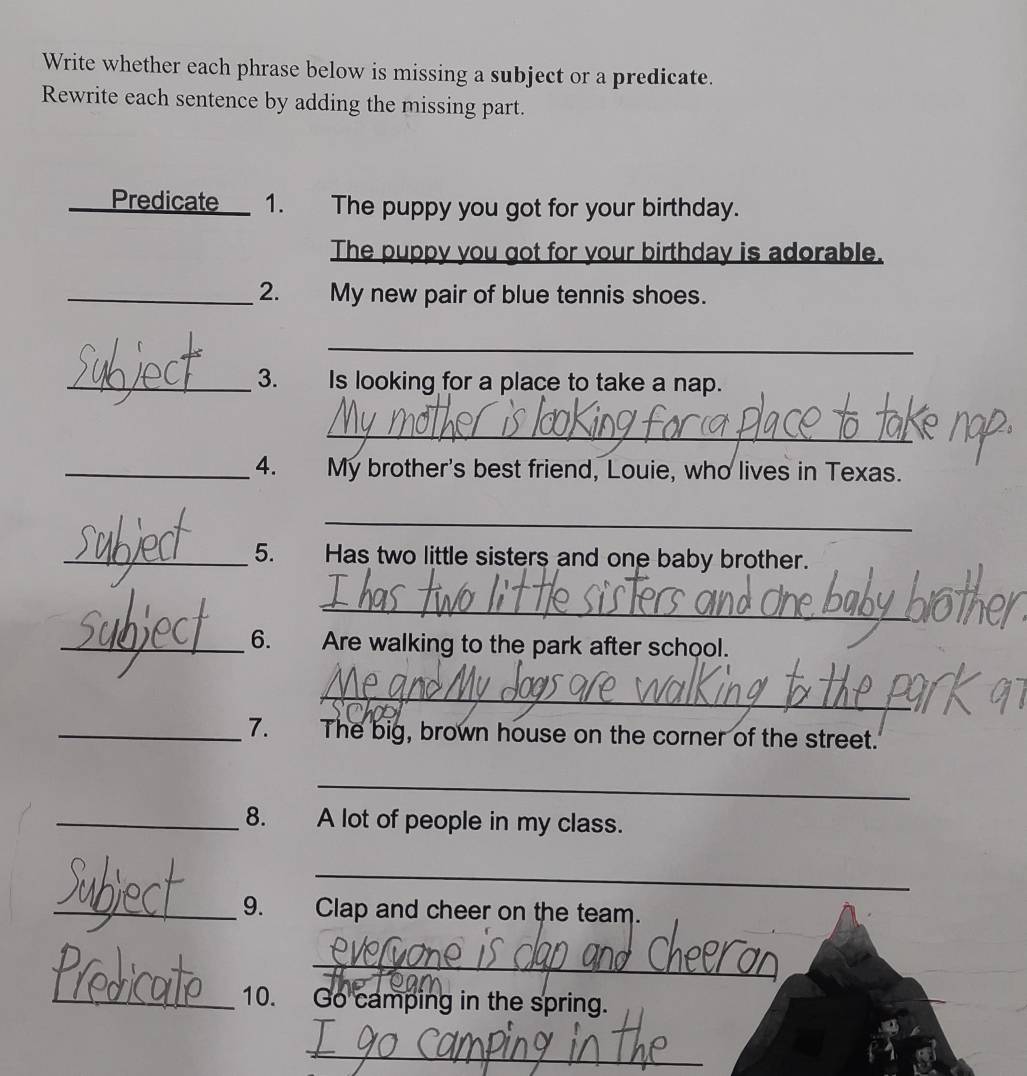 Write whether each phrase below is missing a subject or a predicate.
Rewrite each sentence by adding the missing part.
Predicate 1. The puppy you got for your birthday.
The puppy you got for your birthday is adorable.
2. My new pair of blue tennis shoes.
Subject 3. Is looking for a place to take a nap.
My mother is looking for a place to take nap.
4. My brother's best friend, Louie, who lives in Texas.
subject 5. Has two little sisters and one baby brother.
I has two little sisters and one baby brother.
subject 6. Are walking to the park after school.
Me and My dogs are walking to the park
school
7. The big, brown house on the corner of the street.
8. A lot of people in my class.
Subject 9. Clap and cheer on the team.
everyone is clap and cheer on
the team
Predicate 10. Go camping in the spring.
I go camping in the